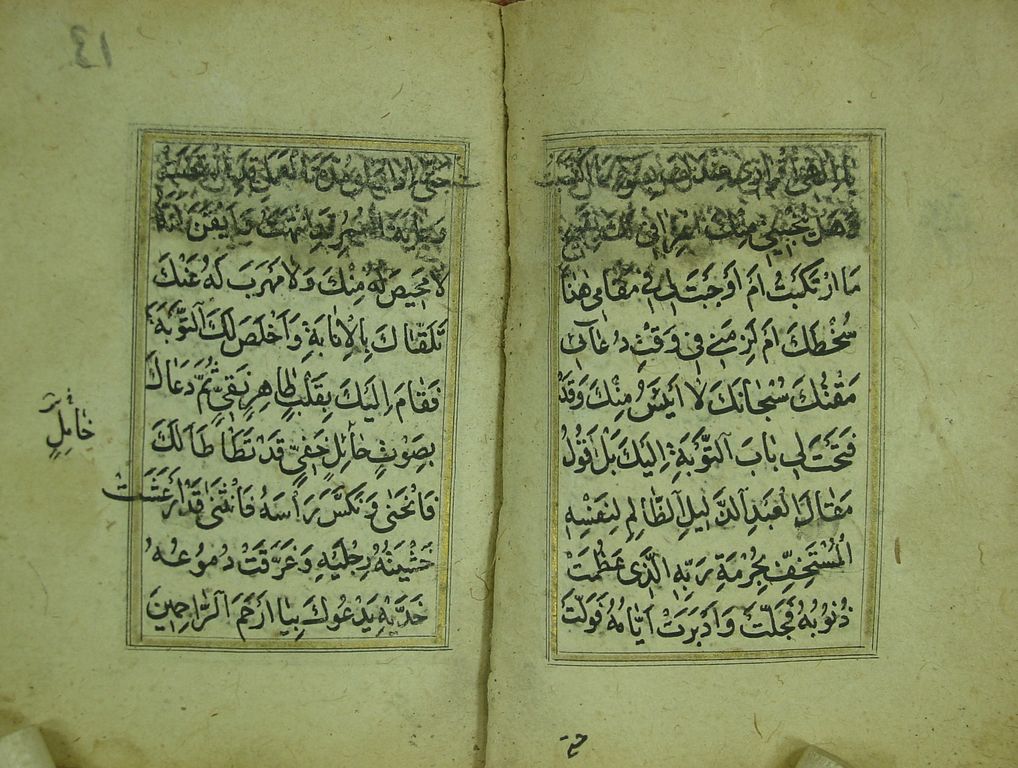 وهل ينجيني منك
ما ارتكبت ام اوجبت لي في مقامي هذا
سخطك ام لزمني في وقت دعائي
مقتك سبحانك لا ايئس منك وقد
فتحت لي باب التوبة اليك بل اقول
مقال العبد الذليل الظالم لنفسه
المستخف بحرمة ربه الذي عظمت
ذنوبه فجلت وادبرت ايامه فولت
حتى
١٤
انتهت وايقن انه
لا محيص له منك ولا مهرب له عنك
تلقاك بالانابة واخلص لك التوبة
فقام اليك بقلب طاهر نقي ثم دعاك
بصوت حائل خفي قد تطاطا لك
حائل
فانحنى ونكس راسه فانثنى قد ارعشت
خشيته رجليه وغرقت دموعه
خديه يدعوك بيا ارحم الراحمين